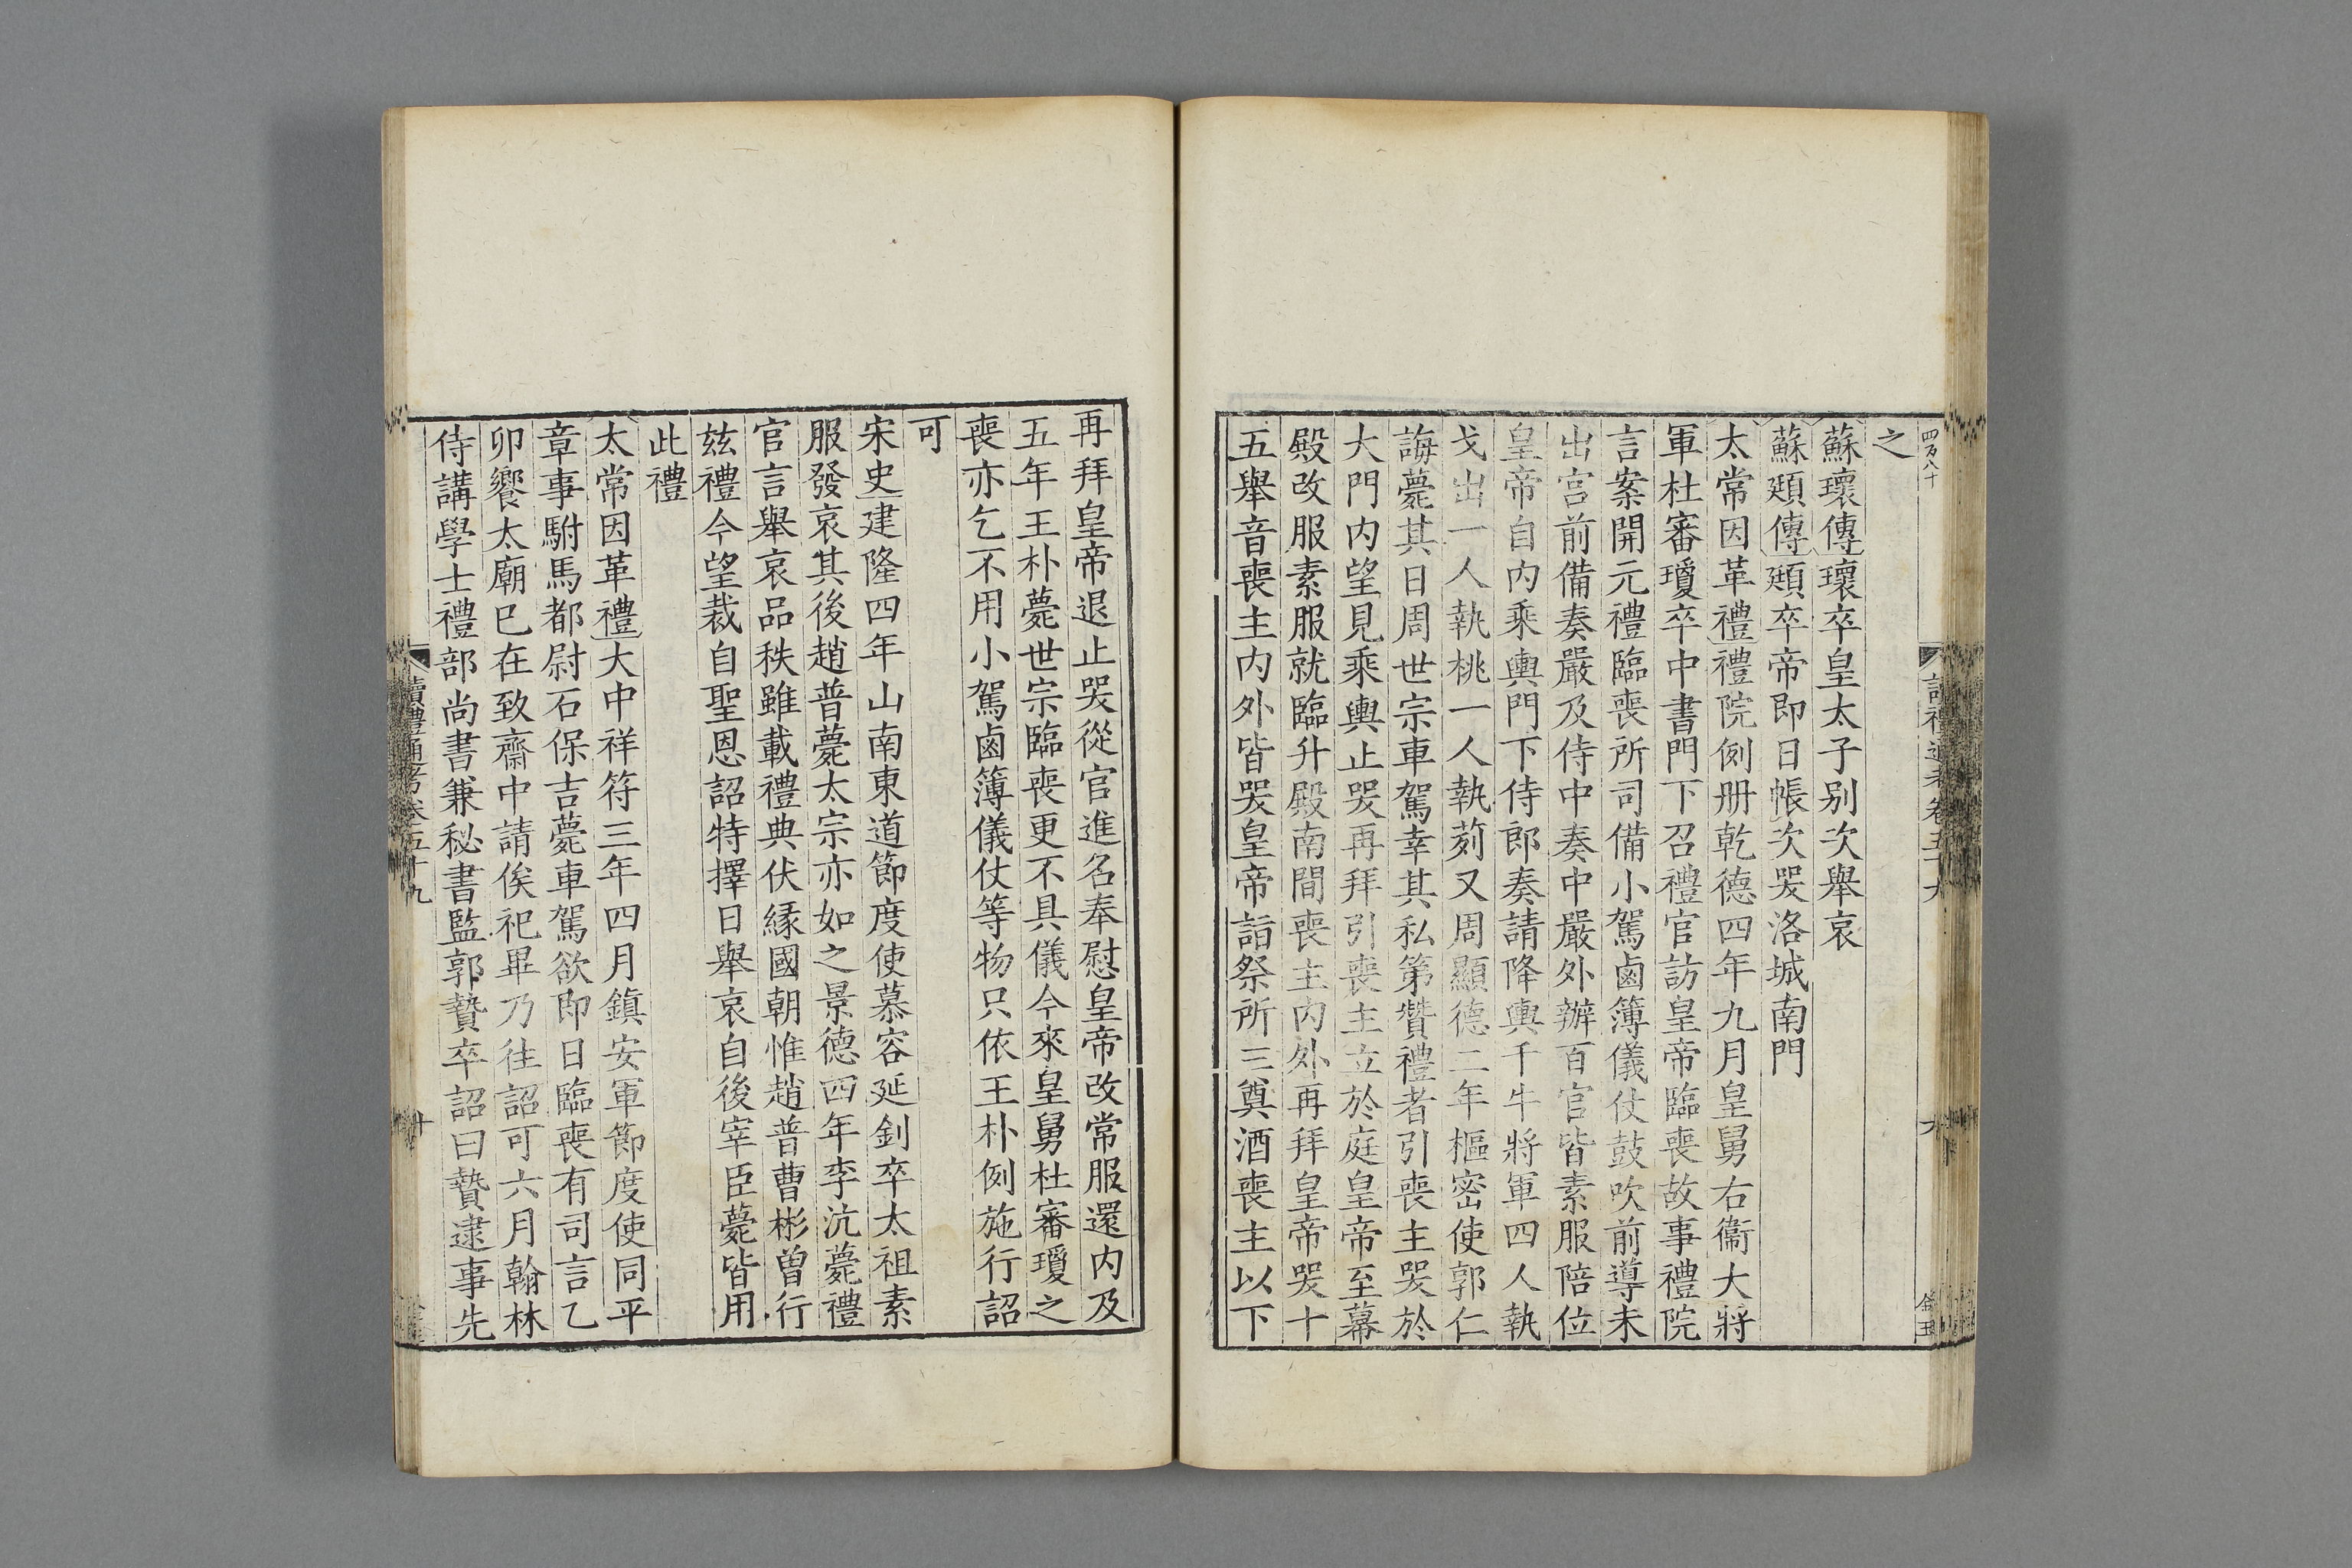 四百八十
之
蘇瓌傳瓌卒皇太子别次舉哀
蘇頲傳頲卒帝即日帳次哭洛城南門
太常因革禮禮院例册乾德四年九月皇舅右衞大將
軍杜審瓊卒中書門下召禮官訪皇帝臨喪故事禮院
言案開元禮臨喪所司備小駕鹵簿儀仗鼓吹前導未
出宫前備奏嚴及侍中奏中嚴外辦百官皆素服陪位
皇帝自内乘輿門下侍郎奏請降輿千牛將軍四人執
戈出一人執桃一人執茢又周顯德二年樞密使郭仁
誨薨其日周世宗車駕幸其私第贊禮者引喪主哭於
大門内望見乘輿止哭再拜引喪主立於庭皇帝至幕
殿改服素服就臨升殿南間喪主内外再拜皇帝哭十
五舉音喪主内外皆哭皇帝詣祭所三奠酒喪主以下
再拜皇帝退止哭從官進名奉慰皇帝改常服還内及
五年王朴薨世宗臨喪更不具儀今來皇舅杜審瓊之
喪亦乞不用小駕鹵簿儀仗等物只依王朴例施行詔
可
宋史建隆四年山南東道節度使慕容延釗卒太祖素
服發哀其後趙普薨太宗亦如之景德四年李沆薨禮
官言舉哀品秩雖載禮典伏緣國朝惟趙普曹彬曾行
兹禮今望裁自聖恩詔特擇日舉哀自後宰臣薨皆用
此禮
太常因革禮大中祥符三年四月鎮安軍節度使同平
章事駙馬都尉石保吉薨車駕欲即日臨喪有司言乙
卯饗太廟巳在致齋中請俟祀畢乃往詔可六月翰林
侍講學士禮部尚書兼秘書監郭贄卒詔曰贄逮事先
讀禮通考卷五十九